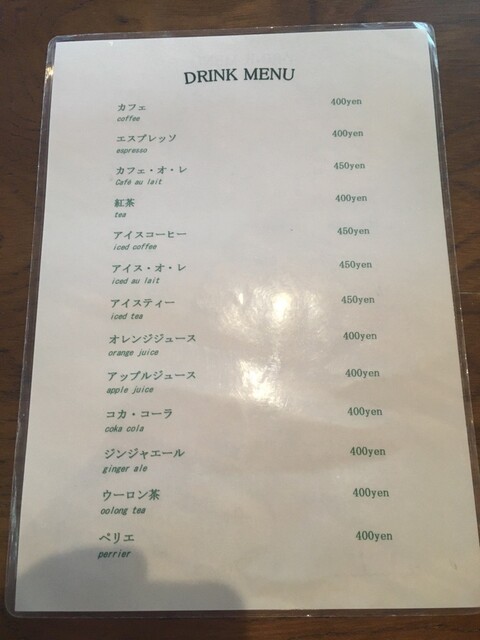 DRINK MENU
カフェ 400yen
coffee
エスプレッソ 400yen
espresso
カフェ・オ・レ 450yen
Café au lait
紅茶 400yen
tea
アイスコーヒー 450yen
iced coffee
アイス・オ・レ 450yen
iced au lait
アイスティー 450yen
iced tea
オレンジジュース 400yen
orange juice
アップルジュース 400yen
apple juice
コカ・コーラ 400yen
coka cola
ジンジャエール 400yen
ginger ale
ウーロン茶 400yen
oolong tea
ペリエ 400yen
perrier